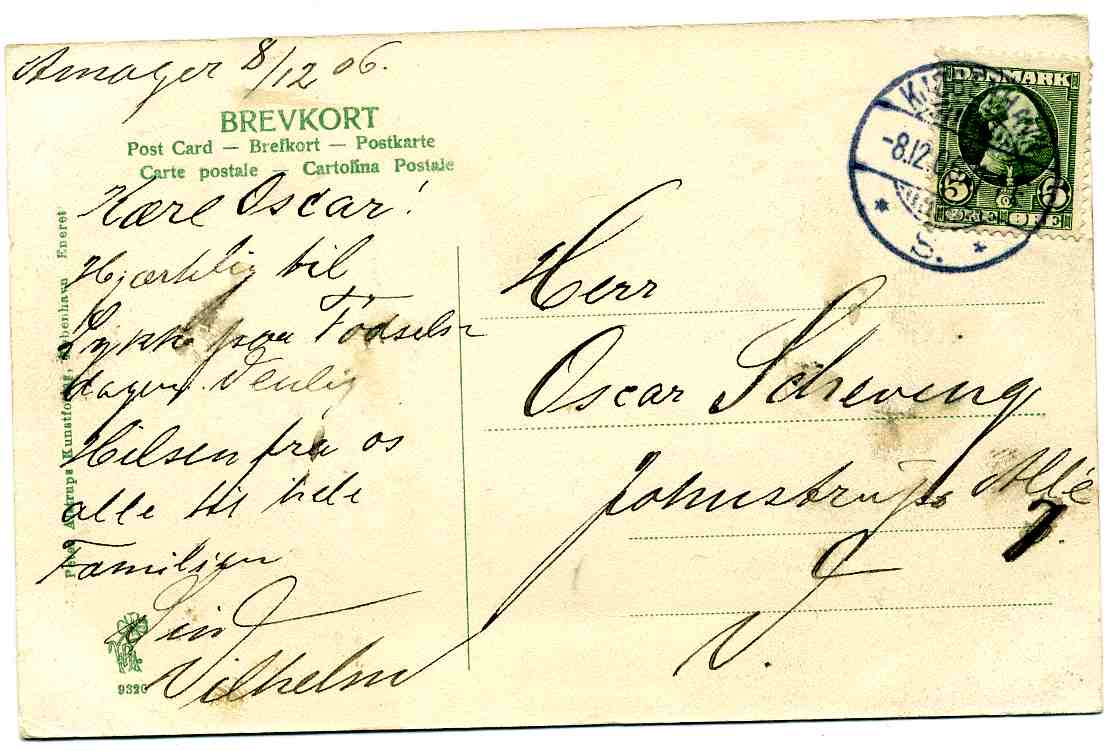 Amager 8/12 06.
BREVKORT
Post Card — Brefkort — Postkarte
Carte postale — Cartolina Postale
Kære Oscar!
Hjærtelig til
Lykke paa Fødsels
dagen. Venlig
Hilsen fra os
alle til hele
Familien
Vilhelm
Peter Alstrups Kunstforlag, København Eneret
9320
DANMARK
5 5
ØRE ØRE
KJØBENHAVN
-8.12.06
* S. *
Herr
Oscar Scheving
Johnstrups Allé
7.
V.